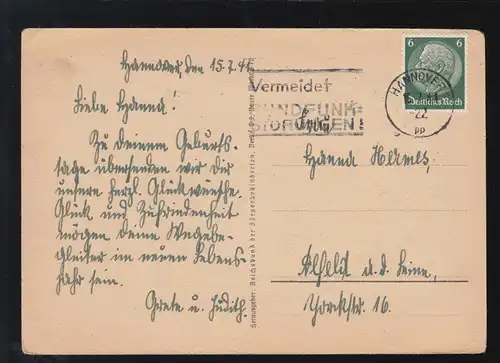 Hannover, den 15.7.41
Liebe Hanna!
Zu deinem Geburts-
tage übersenden wir dir
unsere herzl. Glückwünsche.
Glück und Zufriedenheit
mögen deine Wegebe-
gleiter im neuen Lebens-
jahr sein.
Grete u. Judith.
Herausgeber: Reichsbund der Körperbehinderten,
Vermeidet
RUNDFUNK-
STÖRUNGEN!
HANNOVER
22
pp
6 6
Deutsches Reich
Hanna Hermes,
Alfeld a. d. Leine,
Yorckstr. 16.